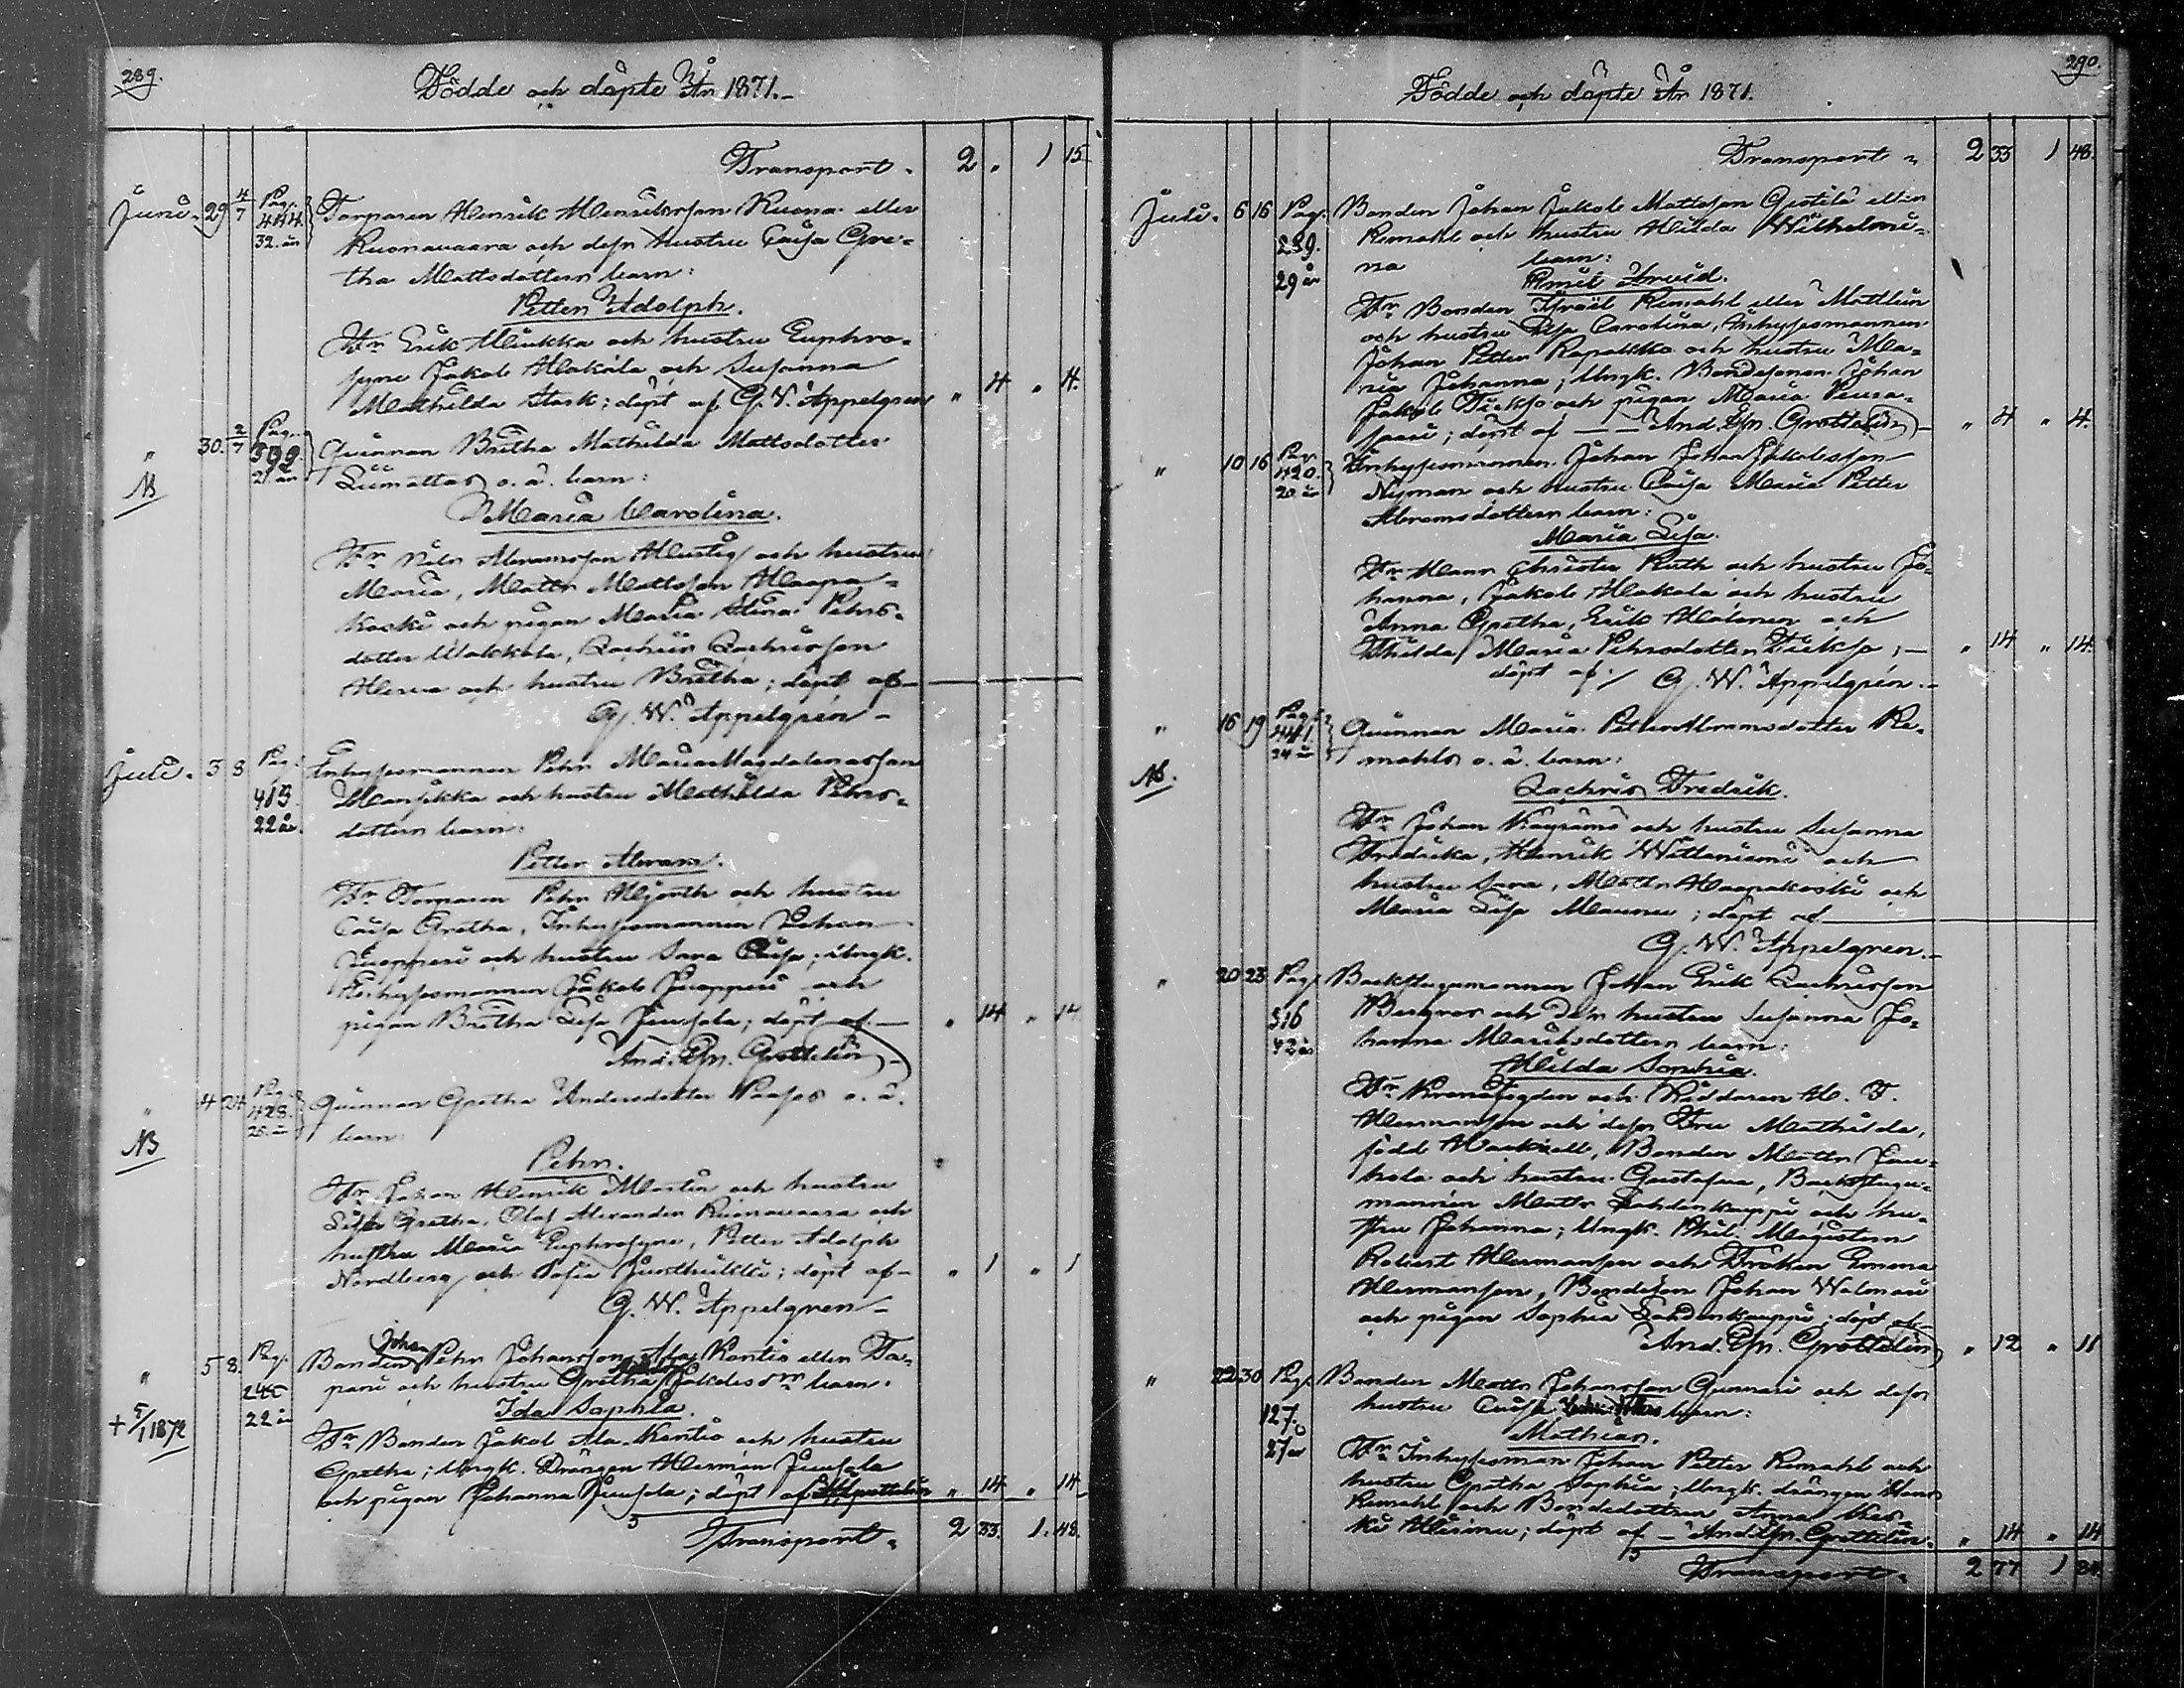 289.
Födde och döpte År 1871.
Transport. 2 " 1 15
Juni. 29 4/7 Pag. 444. 32. år Torparen Henrik Henriksson Kuona eller
Kuonavaara och dess hustru Caisa Gre-
tha Mattsdotters barn:
Petter Adolph.
Fr Erik Hiukka och hustru Euphro-
syne Jakob Hakala och Susanna
Mathilda Stark; döpt af G. W. Appelgren " 4 " 4.
" 30. 2/7 Pag. 392. 21 år Qvinnan Britha Mathilda Mattsdotter
NB Liimattas o. ä. barn:
Maria Carolina.
Fr Nils Abramsson Hustig och hustru
Maria, Matts Mattsson Haapa-
koski och pigan Maria Stina Pehrs-
dotter Ulakkola, Zachris Zachrisson
Herva och hustru Britha; döpt af
G. W. Appelgren
Juli. 3 8 Pag. 415. 22 år. Inhysesmannen Pehr Maria Magdalenasson
Mansikka och hustru Mathilda Pehrs-
dotters barn:
Petter Abram.
Fr Torparen Pehr Hjorth och hustru
Caisa Gretha, Inhysesmannen Johan
Juopperi och hustru Sara Caisa; Ungk.
Inhysesmannen Jakob Juopperi och
pigan Britha Lisa Juusola; döpt af " 14 " 14
And. Gn. Grottelin
" 4 24 Pag. 428. 25. år Qvinnan Gretha Andersdotter Paasos o. ä.
NB barn:
Pehr.
Fr Johan Henrik Martin och hustru
Lisa Gretha, Olof Alexander Kuonavaara och
hustru Maria Euphrosyne, Petter Adolph
Nordberg och Sofia Juotkukki; döpt af " 1 " 1
G. W. Appelgren
" 5 8. Pag. 240 22 år Bonden Johan Pehr Johansson Ala Kontio eller Ta-
pani och hustru Gretha Jakobsdrs barn:
+ 5/1 1872 Ida Sophia.
Fr Bonden Jakob Ala-Kontio och hustru
Gretha; Ungk. Drängen Herman Juusola
och pigan Johanna Juusola; döpt af Grottelin " 14 " 14
Transport. 2 33. 1. 48.
290.
Födde och döpte År 1871.
Transport 2 33 1 48.
Juli. 6 16 Pag. 239. 29 år Bonden Johan Jakob Mattsson Gestilä eller
Kemahl och hustru Hilda Wilhelmi-
na barn:
Emil Arvid.
Fr Bonden Israël Kemahl eller Mattlin
och hustru Lisa Carolina, Inhysesmannen
Johan Petter Rapakko och hustru Ma-
ria Johanna; Ungk. Bondesonen Johan
Jakob Fickso och pigan Maria Peura-
saari; döpt af And. Gn. Grottelin " 4 " 4.
" 10 16 Pag. 420. 20 år Inhysesmannen Johan Johan Jakobsson
Nyman och hustru Caisa Maria Petter
Abramsdotters barn:
Maria Lisa.
Fr Hans Christer Ruth och hustru Jo-
hanna, Jakob Hakala och hustru
Anna Gretha, Erik Halonen och
Thilda Maria Pehrsdotter Fickso; " 14 " 14.
döpt af G. W. Appelgren.
" 15 19 Pag. 441. 24 år Qvinnan Maria Petter Abramsdotter Ke-
NB. mahls o. ä. barn:
Zachris Fredrik.
Fr Johan Käyrämö och hustru Susanna
Fredrika, Henrik Wittaniemi och
hustru Sara, Matts Haapakoski och
Maria Lisa Maunu; döpt af
G. W. Appelgren.
" 20 23 Pag. 316 42 år Backstugumannen Johan Erik Zachrisson
Bergros och Dess hustru Susanna Jo-
hanna Henriksdotters barn:
Hilda Sophia.
Fr Kronofogden och Riddaren H. F.
Hermanson och dess Fru Mathilda,
född Hackzell, Bonden Matts Jun-
kola och hustru Gustafva, Backstugu-
mannen Matts Lahdenkauppi och hu-
stru Johanna; Ungk. Phil. Magistern
Robert Hermanson och Fröken Emma
Hermanson, Bondeson Johan Walmari
och pigan Sophia Lahdenkauppi; döpt af
And. Gn. Grottelin " 12 " 11
" 22 30 Pag. 127. 27 år Bonden Matts Johansson Gunnari och dess
hustru Caisa barn:
Mathias.
Fr Inhysesman Johan Petter Kemahl och
hustru Gretha Sophia; Ungk. drängen Hans
Kemahl och Bondedottren Anna Kes-
ki Hirmu; döpt af And. Gn. Grottelin. " 14 " 14
Transport. 2 77 1 84